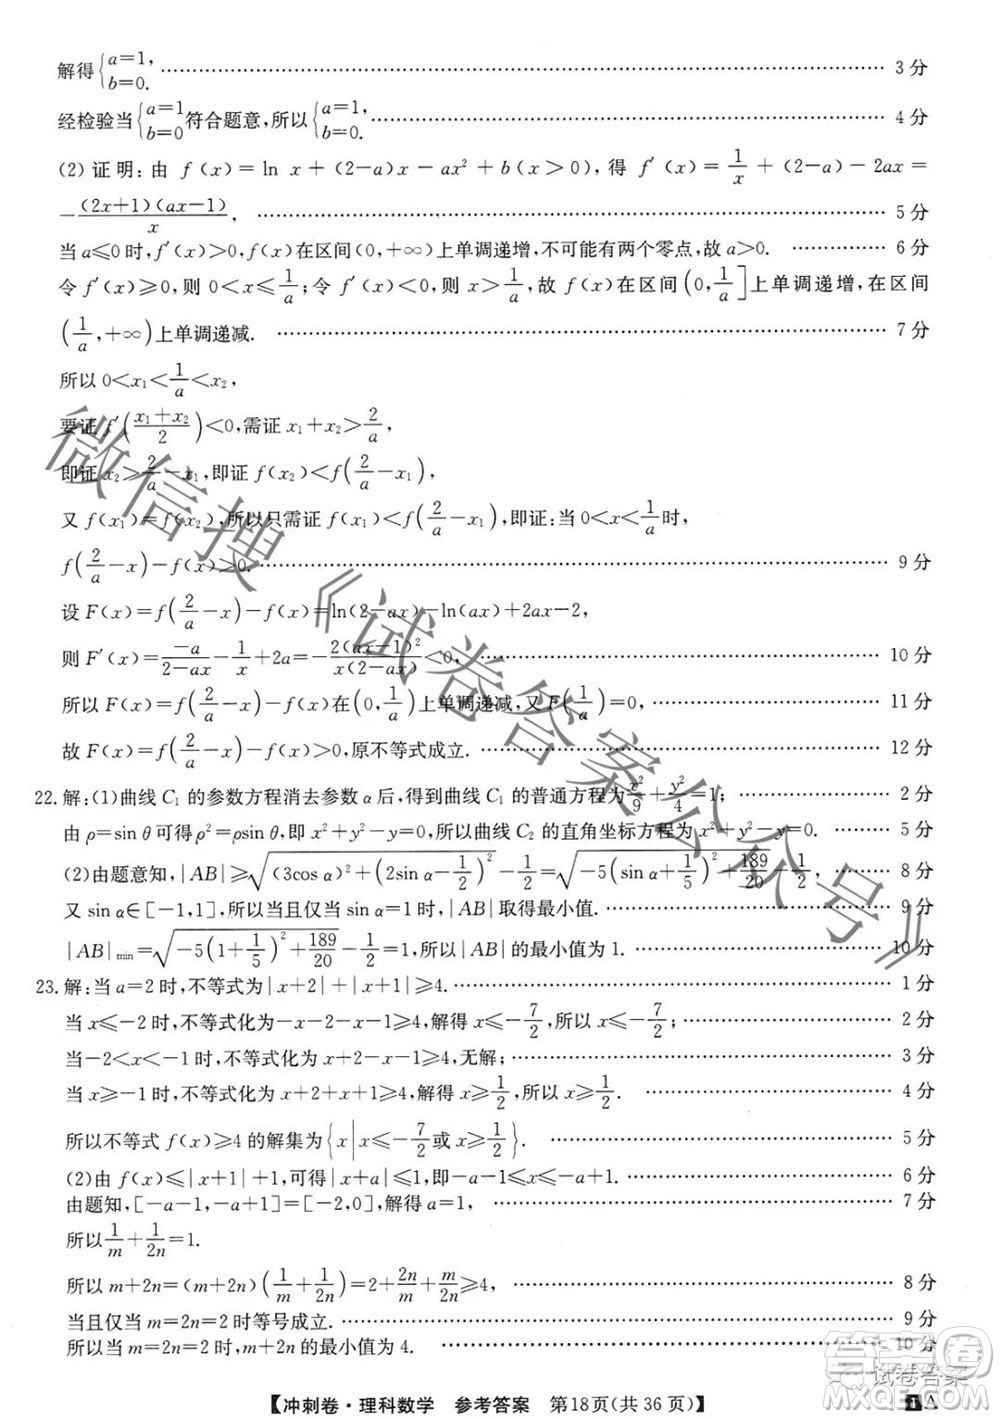 解得{a=1, b=0. 3分
经检验当{a=1 b=0 符合题意,所以{a=1, b=0. 4分
(2)证明:由 f(x)=ln x+(2-a)x-ax²+b(x>0),得 f′(x)=1/x+(2-a)-2ax=
-(2x+1)(ax-1)/x. 5分
当a≤0时,f′(x)>0,f(x)在区间(0,+∞)上单调递增,不可能有两个零点,故a>0. 6分
令 f′(x)≥0,则0<x≤1/a;令 f′(x)<0,则x>1/a,故 f(x)在区间(0,1/a]上单调递增,在区间
(1/a,+∞)上单调递减. 7分
所以0<x₁<1/a<x₂,
要证f′((x₁+x₂)/2)<0,需证x₁+x₂>2/a,
即证x₂>2/a-x₁,即证f(x₂)<f(2/a-x₁),
又f(x₁)=f(x₂),所以只需证f(x₁)<f(2/a-x₁),即证:当0<x<1/a时,
f(2/a-x)-f(x)>0. 9分
设F(x)=f(2/a-x)-f(x)=ln(2-ax)-ln(ax)+2ax-2,
则F′(x)=-a/(2-ax)-1/x+2a=-2(ax-1)²/x(2-ax)<0, 10分
所以F(x)=f(2/a-x)-f(x)在(0,1/a)上单调递减,又F(1/a)=0, 11分
故F(x)=f(2/a-x)-f(x)>0,原不等式成立. 12分
22.解:(1)曲线C₁的参数方程消去参数α后,得到曲线C₁的普通方程为x²/9+y²/4=1; 2分
由ρ=sin θ可得ρ²=ρsin θ,即x²+y²-y=0,所以曲线C₂的直角坐标方程为x²+y²-y=0. 5分
(2)由题意知,|AB|≥√((3cos α)²+(2sin α-1/2)²)-1/2=√(-5(sin α+1/5)²+189/20)-1/2, 8分
又sin α∈[-1,1],所以当且仅当sin α=1时,|AB|取得最小值. 9分
|AB|min=√(-5(1+1/5)²+189/20)-1/2=1,所以|AB|的最小值为1. 10分
23.解:当a=2时,不等式为|x+2|+|x+1|≥4. 1分
当x≤-2时,不等式化为-x-2-x-1≥4,解得x≤-7/2,所以x≤-7/2; 2分
当-2<x<-1时,不等式化为x+2-x-1≥4,无解; 3分
当x≥-1时,不等式化为x+2+x+1≥4,解得x≥1/2,所以x≥1/2. 4分
所以不等式f(x)≥4的解集为{x|x≤-7/2或x≥1/2}. 5分
(2)由f(x)≤|x+1|+1,可得|x+a|≤1,即-a-1≤x≤-a+1. 6分
由题知,[-a-1,-a+1]=[-2,0],解得a=1, 7分
所以1/m+1/2n=1.
所以m+2n=(m+2n)(1/m+1/2n)=2+2n/m+m/2n≥4, 8分
当且仅当m=2n=2时等号成立. 9分
所以当m=2n=2时,m+2n的最小值为4. 10分
【冲刺卷·理科数学 参考答案 第18页(共36页)】
A
微信搜《试卷答案公众号》
答案圈
试卷答案
MXQE.COM